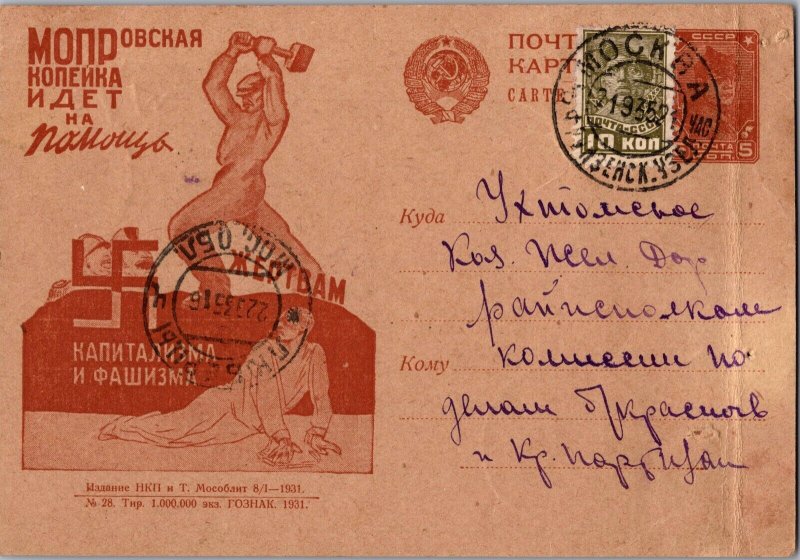 МОПРовская
копейка
идет
на
помощь
жертвам
капитализма
и фашизма
Издание НКП и Т. Мособлит 8/I—1931.
№ 28. Тир. 1.000.000 экз. ГОЗНАК. 1931.
ПОЧТ
КАРТ
CARTE
ПОЧТА СССР
10 КОП
СССР
ПОЧТА
5
МОСКВА
МОС. ОБЛ.
Куда
Ухтомское
Каз. Жел. Дор
райисполком
Кому
комиссии по
делам б/красногв
и Кр. партизан